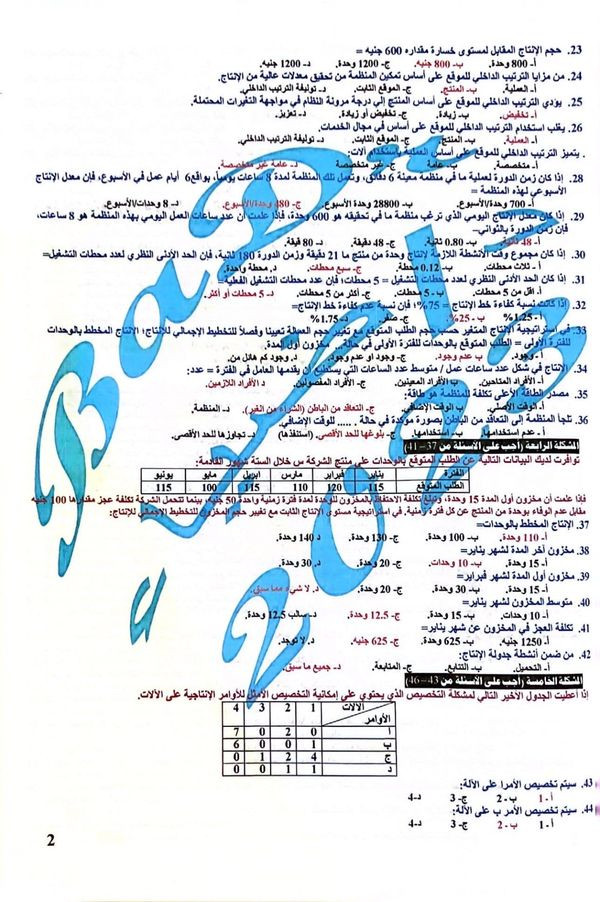 23. حجم الإنتاج المقابل لمستوى خسارة مقداره 600 جنيه =
أ- 800 وحدة. ب- 800 جنيه. ج- 1200 وحدة. د- 1200 جنيه.
24. من مزايا الترتيب الداخلي للموقع على أساس تمكين المنظمة من تحقيق معدلات عالية من الإنتاج.
أ- العملية. ب- المنتج. ج- الموقع الثابت. د- توليفة الترتيب الداخلي.
25. يؤدي الترتيب الداخلي للموقع على أساس المنتج إلي درجة مرونة النظام في مواجهة التغيرات المحتملة.
أ- تخفيض. ب- زيادة. ج- تخفيض أو زيادة. د- تعزيز.
26. يقلب استخدام الترتيب الداخلي للموقع على أساس في مجال الخدمات.
أ- العملية. ب- المنتج. ج- الموقع الثابت. د- توليفة الترتيب الداخلي.
. يتميز الترتيب الداخلي للموقع على أساس العملية باستخدام آلات:
أ- متخصصة. ب- عامة ج- غير متخصصة د- عامة غير متخصصة.
28. إذا كان زمن الدورة لعملية ما في منظمة معينة 6 دقائق، وتعمل تلك المنظمة لمدة 8 ساعات يومياً، بواقع6 أيام عمل في الأسبوع، فإن معدل الإنتاج
الأسبوعي لهذه المنظمة =
أ- 700 وحدة/الأسبوع. ب- 28800 وحدة/الأسبوع. ج- 480 وحدة/الأسبوع. د- 8 وحدات/الأسبوع.
29. إذا كان معدل الإنتاج اليومي الذي ترغب منظمة ما في تحقيقه هو 600 وحدة، فإذا علمت أن عدد ساعات العمل اليومي بهذه المنظمة هو 8 ساعات،
فإن زمن الدورة بالثواني=
أ- 48 ثانية. ب- 0.80 ثانية. ج- 48 دقيقة. د- 80 دقيقة.
30. إذا كان مجموع وقت الأنشطة اللازمة لإنتاج وحدة من منتج ما 21 دقيقة وزمن الدورة 180 ثانية، فإن الحد الأدنى النظري لعدد محطات التشغيل=
أ- ثلاث محطات. ب- 0.12 محطة. ج- سبع محطات. د- محطة واحدة.
31. إذا كان الحد الأدنى النظري لعدد محطات التشغيل = 5 محطات؛ فإن عدد محطات التشغيل الفعلية =
أ- أقل من 5 محطات. ب- 5 محطات. ج- أكثر من 5 محطات. د- 5 محطات أو أكثر.
32. إذا كانت نسبة كفاءة خط الإنتاج = 75%؛ فإن نسبة عدم كفاءة خط الإنتاج=
أ- 1.25% ب- 25%. ج- صفر. د- 1.75%.
33. في استراتيجية الإنتاج المتغير حسب حجم الطلب المتوقع مع تغيير حجم العمالة تعيينا وفصلاً للتخطيط الإجمالي للإنتاج؛ الإنتاج المخطط بالوحدات
للفترة الأولى = الطلب المتوقع بالوحدات للفترة الأولى في حالة... مخزون أول المدة.
أ- وجود. ب- عدم وجود. ج- وجود أو عدم وجود. د- وجود كم هائل من.
34. الإنتاج في شكل عدد ساعات عمل / متوسط عدد الساعات التي يستطيع أن يقدمها العامل في الفترة = عدد:
أ- الأفراد المتاحين. ب- الأفراد المعينين. ج- الأفراد المفصولين. د- الأفراد اللازمين.
35. مصدر الطاقة الأعلى تكلفة للمنظمة هو طاقة:
أ- الوقت الأصلي. ب- الوقت الإضافي. ج- التعاقد من الباطن (الشراء من الغير). د- المنظمة.
36. تلجأ المنظمة إلى التعاقد من الباطن بصورة مؤكدة في حالة ..... للوقت الإضافي.
أ- عدم استخدامها. ب- استخدامها. ج- بلوغها للحد الأقصى. (استنفذها) د- تجاوزها للحد الأقصى.
المشكلة الرابعة (أجب على الأسئلة من 37 – 41)
توافرت لديك البيانات التالية عن الطلب المتوقع بالوحدات على منتج الشركة س خلال الستة شهور القادمة:
الفترة يناير فبراير مارس ابريل مايو يونيو
الطلب المتوقع 115 120 110 115 100 115
فإذا علمت أن مخزون أول المدة 15 وحدة، وتبلغ تكلفة الاحتفاظ بالمخزون للوحدة لمدة فترة زمنية واحدة 50 جنيه، بينما تتحمل الشركة تكلفة عجز مقدارها 100 جنيه
مقابل عدم الوفاء بوحدة من المنتج عن كل فترة زمنية. في استراتيجية مستوى الإنتاج الثابت مع تغيير حجم المخزون للتخطيط الإجمالي للإنتاج:
37. الإنتاج المخطط بالوحدات=
أ- 110 وحدة ب- 100 وحدة. ج- 130 وحدة. د- 140 وحدة.
38. مخزون آخر المدة لشهر يناير=
أ- 15 وحدة. ب- 10 وحدات. ج- 20 وحدة. د- 30 وحدة.
39. مخزون أول المدة لشهر فبراير=
أ- 15 وحدة. ب- 30 وحدة. ج- 20 وحدة. د- لا شيء مما سبق.
40. متوسط المخزون لشهر يناير=
أ- 10 وحدات. ب- 15 وحدة. ج- 12.5 وحدة. د- سالب 12.5 وحدة.
41. تكلفة العجز في المخزون عن شهر يناير=
أ- 1250 جنيه. ب- 625 وحدة. ج- 625 جنيه. د- لا توجد.
42. من ضمن أنشطة جدولة الإنتاج:
أ- التحميل. ب- التتابع. ج- المتابعة. د- جميع ما سبق.
المشكلة الخامسة (أجب على الأسئلة من 43 – 46)
إذا أعطيت الجدول الأخير التالي لمشكلة التخصيص الذي يحتوي على إمكانية التخصيص الأمثل للأوامر الإنتاجية على الآلات.
الآلات 1 2 3 4
الأوامر
أ 0 2 0 7
ب 1 0 0 6
ج 4 2 1 0
د 1 1 0 0
43. سيتم تخصيص الأمر أ على الآلة:
أ- 1 ب- 2 ج- 3 د- 4
44. سيتم تخصيص الأمر ب على الآلة:
أ- 1 ب- 2 ج- 3 د- 4
2
BaD
2023